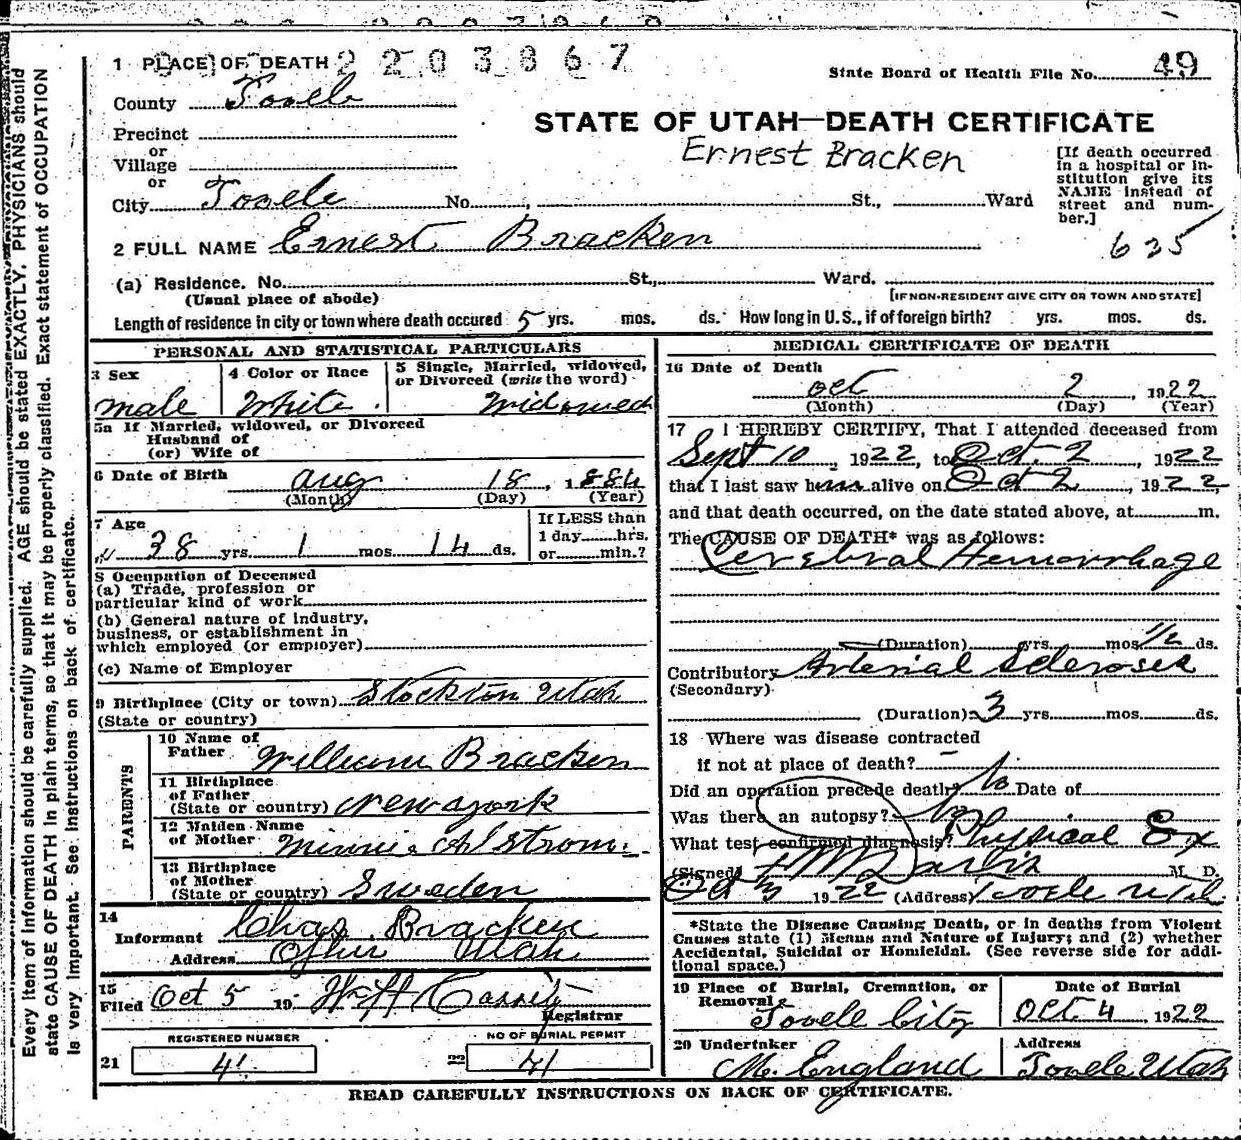 1 PLACE OF DEATH 2203867
State Board of Health File No. 49
County Tooele
STATE OF UTAH—DEATH CERTIFICATE
Ernest Bracken
Precinct
or
Village
or
City Tooele No. , St., Ward
[If death occurred in a hospital or institution give its NAME instead of street and number.]
635
2 FULL NAME Ernest Bracken
(a) Residence. No. St., Ward.
(Usual place of abode) [IF NON-RESIDENT GIVE CITY OR TOWN AND STATE]
Length of residence in city or town where death occured 5 yrs. mos. ds. How long in U.S., if of foreign birth? yrs. mos. ds.
PERSONAL AND STATISTICAL PARTICULARS
3 Sex
male
4 Color or Race
White
5 Single, Married, widowed, or Divorced (write the word)
Widowed
5a If Married, widowed, or Divorced
Husband of
(or) Wife of
6 Date of Birth Aug 18, 1884
(Month) (Day) (Year)
7 Age
38 yrs. 1 mos 14 ds.
If LESS than
1 day hrs.
or min.?
8 Occupation of Deceased
(a) Trade, profession or
particular kind of work
(b) General nature of industry,
business, or establishment in
which employed (or employer)
(c) Name of Employer
9 Birthplace (City or town) Stockton Utah
(State or country)
PARENTS
10 Name of
Father William Bracken
11 Birthplace
of Father
(State or country) New York
12 Maiden Name
of Mother Minnie Ahlstrom
13 Birthplace
of Mother
(State or country) Sweden
14
Informant Chas. Bracken
Address Ophir Utah
15
Filed Oct 5 19
Registrar
REGISTERED NUMBER
21 41
NO OF BURIAL PERMIT
22 41
MEDICAL CERTIFICATE OF DEATH
16 Date of Death
Oct 2, 1922
(Month) (Day) (Year)
17 I HEREBY CERTIFY, That I attended deceased from
Sept 10, 1922, to Oct. 2, 1922
that I last saw him alive on Oct 2, 1922,
and that death occurred, on the date stated above, at m.
The CAUSE OF DEATH* was as follows:
Cerebral Hemorrhage
(Duration) yrs. mos 1/2 ds.
Contributory Arterial Sclerosis
(Secondary)
(Duration) 3 yrs. mos. ds.
18 Where was disease contracted
if not at place of death? -
Did an operation precede death? No Date of
Was there an autopsy?
What test confirmed diagnosis? Physical Ex
(Signed) M. D.
Oct 3 1922 (Address) Tooele Utah
*State the Disease Causing Death, or in deaths from Violent
Causes state (1) Means and Nature of Injury; and (2) whether
Accidental, Suicidal or Homicidal. (See reverse side for additional space.)
19 Place of Burial, Cremation, or
Removal
Tooele City
Date of Burial
Oct 4 1922
20 Undertaker
M. England
Address
Tooele Utah
READ CAREFULLY INSTRUCTIONS ON BACK OF CERTIFICATE.
Every item of information should be carefully supplied. AGE should be stated EXACTLY. PHYSICIANS should
state CAUSE OF DEATH in plain terms, so that it may be properly classified. Exact statement of OCCUPATION
is very important. See instructions on back of certificate.